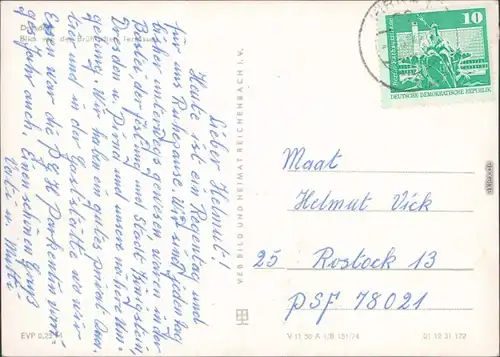 Dresden
Blick von der Brühlschen Terrasse
Lieber Helmut!
Heute ist ein Regentag und
für uns Ruhepause. Wir sind jeden Tag
bisher unterwegs gewesen, waren in der
Bastei, der Festung und Stadt Königstein,
Dresden u. Pirna und unsere nähere Um-
gebung. Wir haben ein gutes privat Quar-
tier und in der Gaststätte wo wir
Essen war die P.G.H.
ges Jahr auch. Einen schönen Gruß
Vati u. Mutti
EVP 0,25 M
VEB BILD UND HEIMAT REICHENBACH I. V.
10
DEUTSCHE DEMOKRATISCHE REPUBLIK
Maat
Helmut Vick
25 Rostock 13
PSF 78021
V 11 50 A 1/B 151/74
01 12 31 172